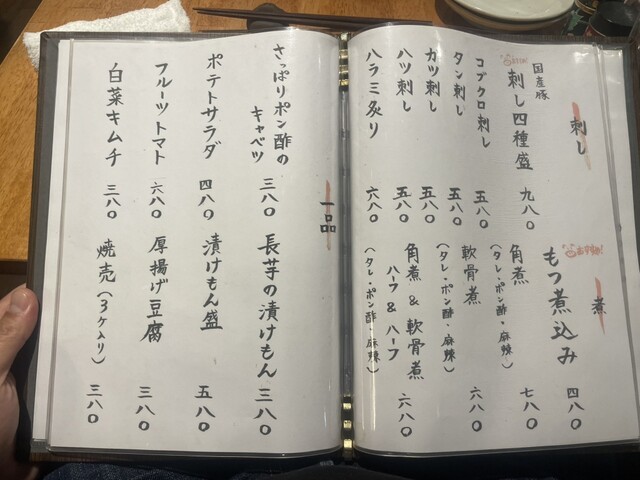 刺し
国産豚
刺し四種盛 九八〇
コブクロ刺し 五八〇
タン刺し 五八〇
カツ刺し 五八〇
ハツ刺し 五八〇
ハラミ炙り 六八〇
煮
おすすめ!
もつ煮込み 四八〇
角煮 七八〇
(タレ・ポン酢・麻辣)
軟骨煮 六八〇
(タレ・ポン酢・麻辣)
角煮&軟骨煮 六八〇
ハーフ&ハーフ
(タレ・ポン酢・麻辣)
一品
さっぱりポン酢の
キャベツ 三八〇
ポテトサラダ 四八〇
フルーツトマト 六八〇
白菜キムチ 三八〇
長芋の漬けもん 三八〇
漬けもん盛 五八〇
厚揚げ豆腐 三八〇
焼売(3ケ入り) 三八〇